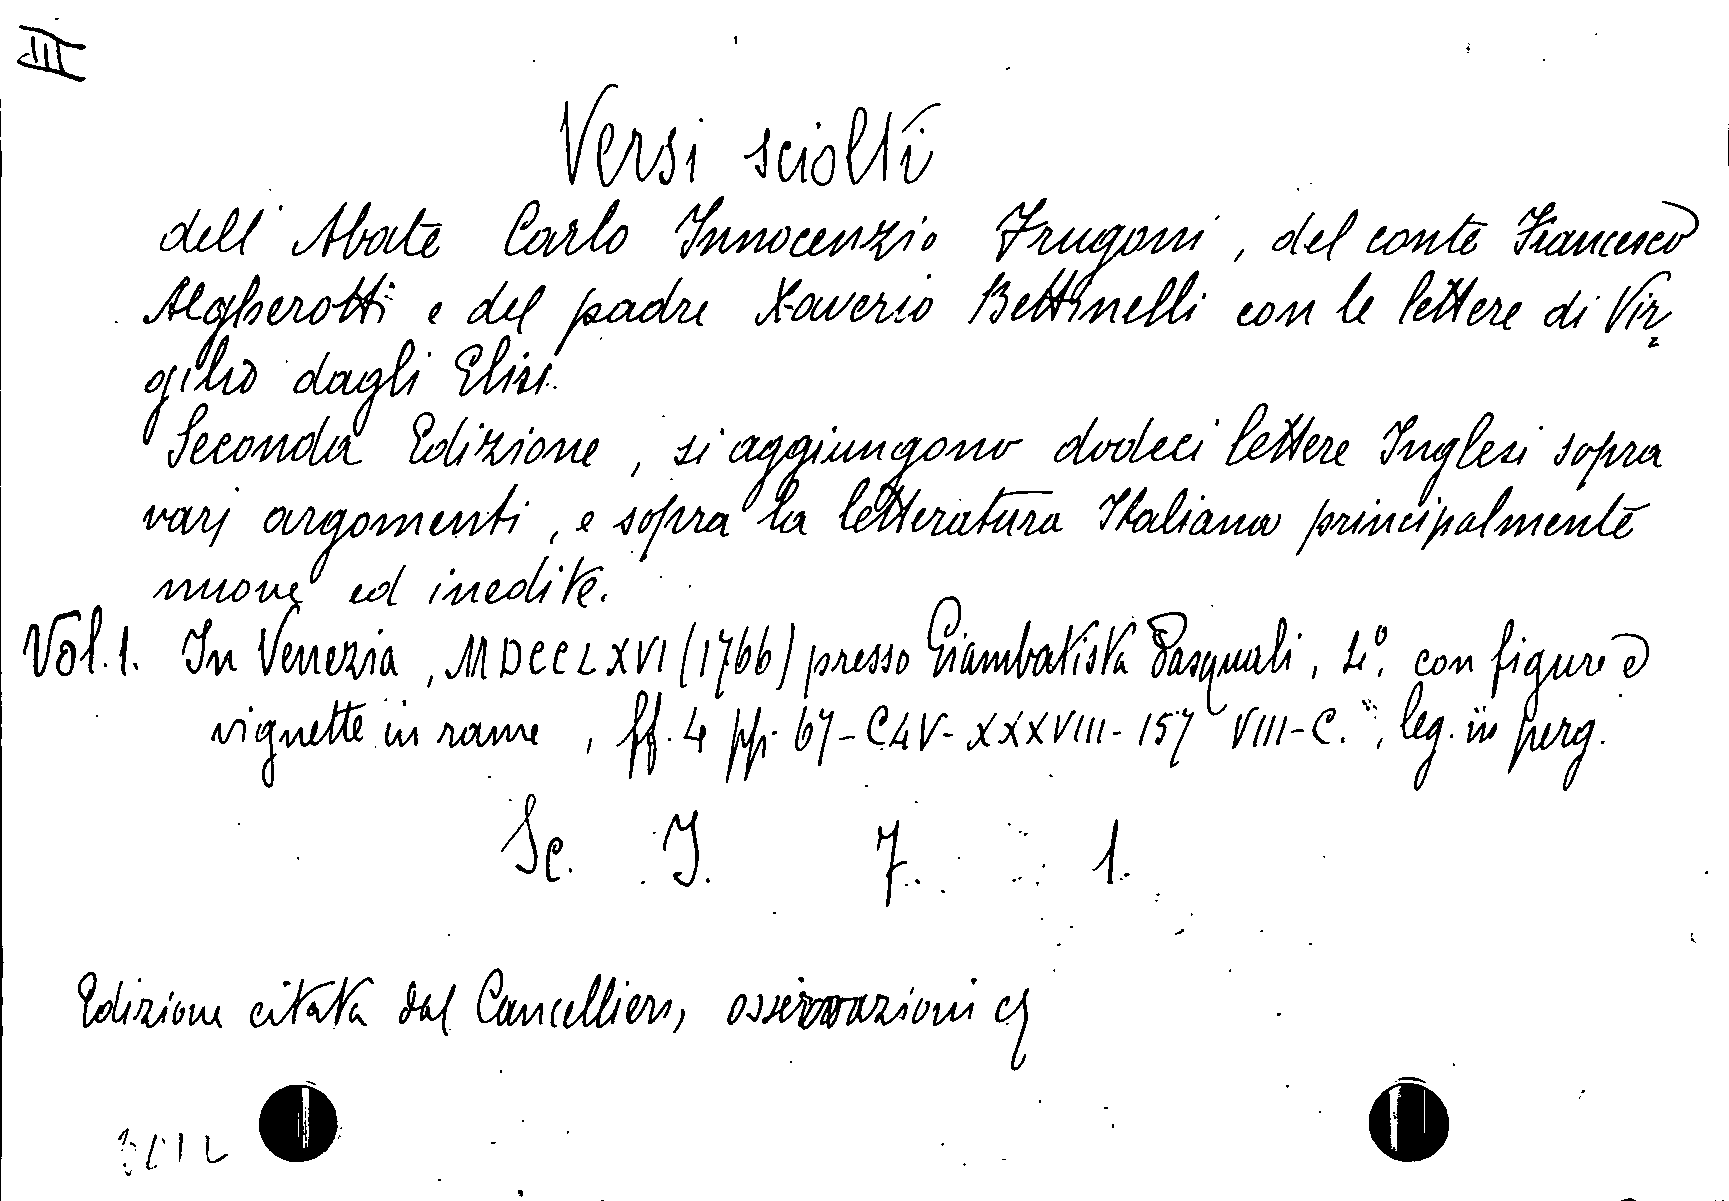 III
Versi sciolti
dell'Abate Carlo Innocenzio Frugoni, del conte Francesco
Algherotti e del padre Xaverio Bettinelli con le lettere di Vir=
gilio dagli Elisi.
Seconda Edizione, si aggiungono dodeci lettere Inglesi sopra
varj argomenti, e sopra la letteratura Italiana principalmente
nuove ed inedite.
Vol. 1. In Venezia, MDCCLXVI (1766) presso Giambatista Pasquali, 4°. con figure e
vignette in rame, ff. 4 pp. 67-C4V-XXXVIII-157 VIII-C., leg. in perg.
Sc. I. 7. 1.
Edizione citata dal Cancellieri, osservazioni